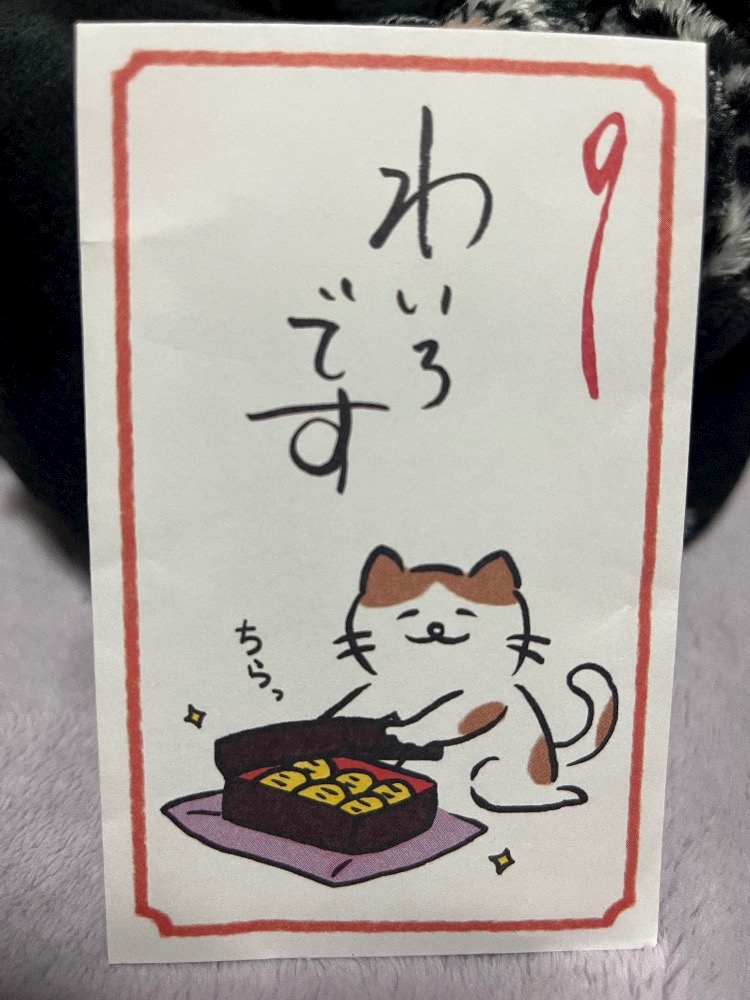 わいろ
です
ちらっ